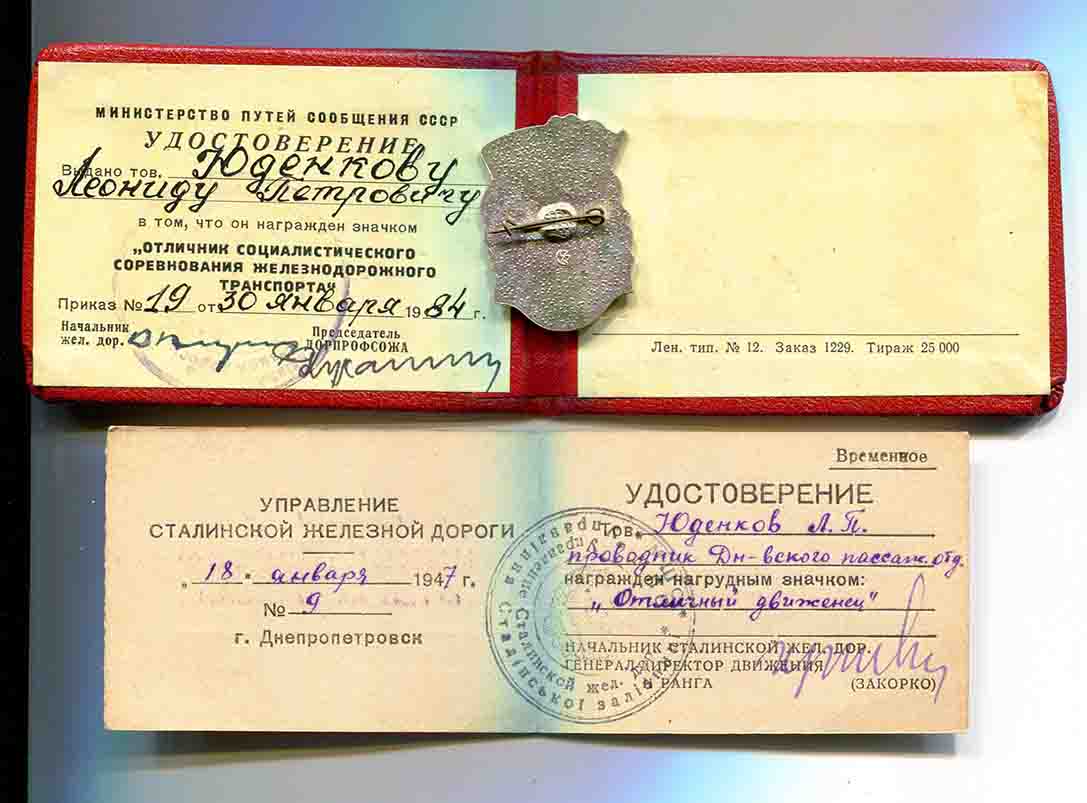 МИНИСТЕРСТВО ПУТЕЙ СООБЩЕНИЯ СССР
УДОСТОВЕРЕНИЕ
Выдано тов. Юденкову
Леониду Петровичу
в том, что он награжден значком
„ОТЛИЧНИК СОЦИАЛИСТИЧЕСКОГО
СОРЕВНОВАНИЯ ЖЕЛЕЗНОДОРОЖНОГО
ТРАНСПОРТА“
Приказ № 19 от 30 января 1984 г.
Начальник
жел. дор.
Председатель
ДОРПРОФСОЖА
Лен. тип. № 12. Заказ 1229. Тираж 25 000
УПРАВЛЕНИЕ
СТАЛИНСКОЙ ЖЕЛЕЗНОЙ ДОРОГИ
„18" января 1947 г.
№ 9
г. Днепропетровск
Временное
УДОСТОВЕРЕНИЕ
Тов. Юденков Л. П.
проводник Дн-вского пассаж. отд.
награжден нагрудным значком:
„Отличный движенец"
НАЧАЛЬНИК СТАЛИНСКОЙ ЖЕЛ. ДОР.
ГЕНЕРАЛ-ДИРЕКТОР ДВИЖЕНИЯ
РАНГА (ЗАКОРКО)
Управление Сталинской жел. дор.
Сталінської залізниці